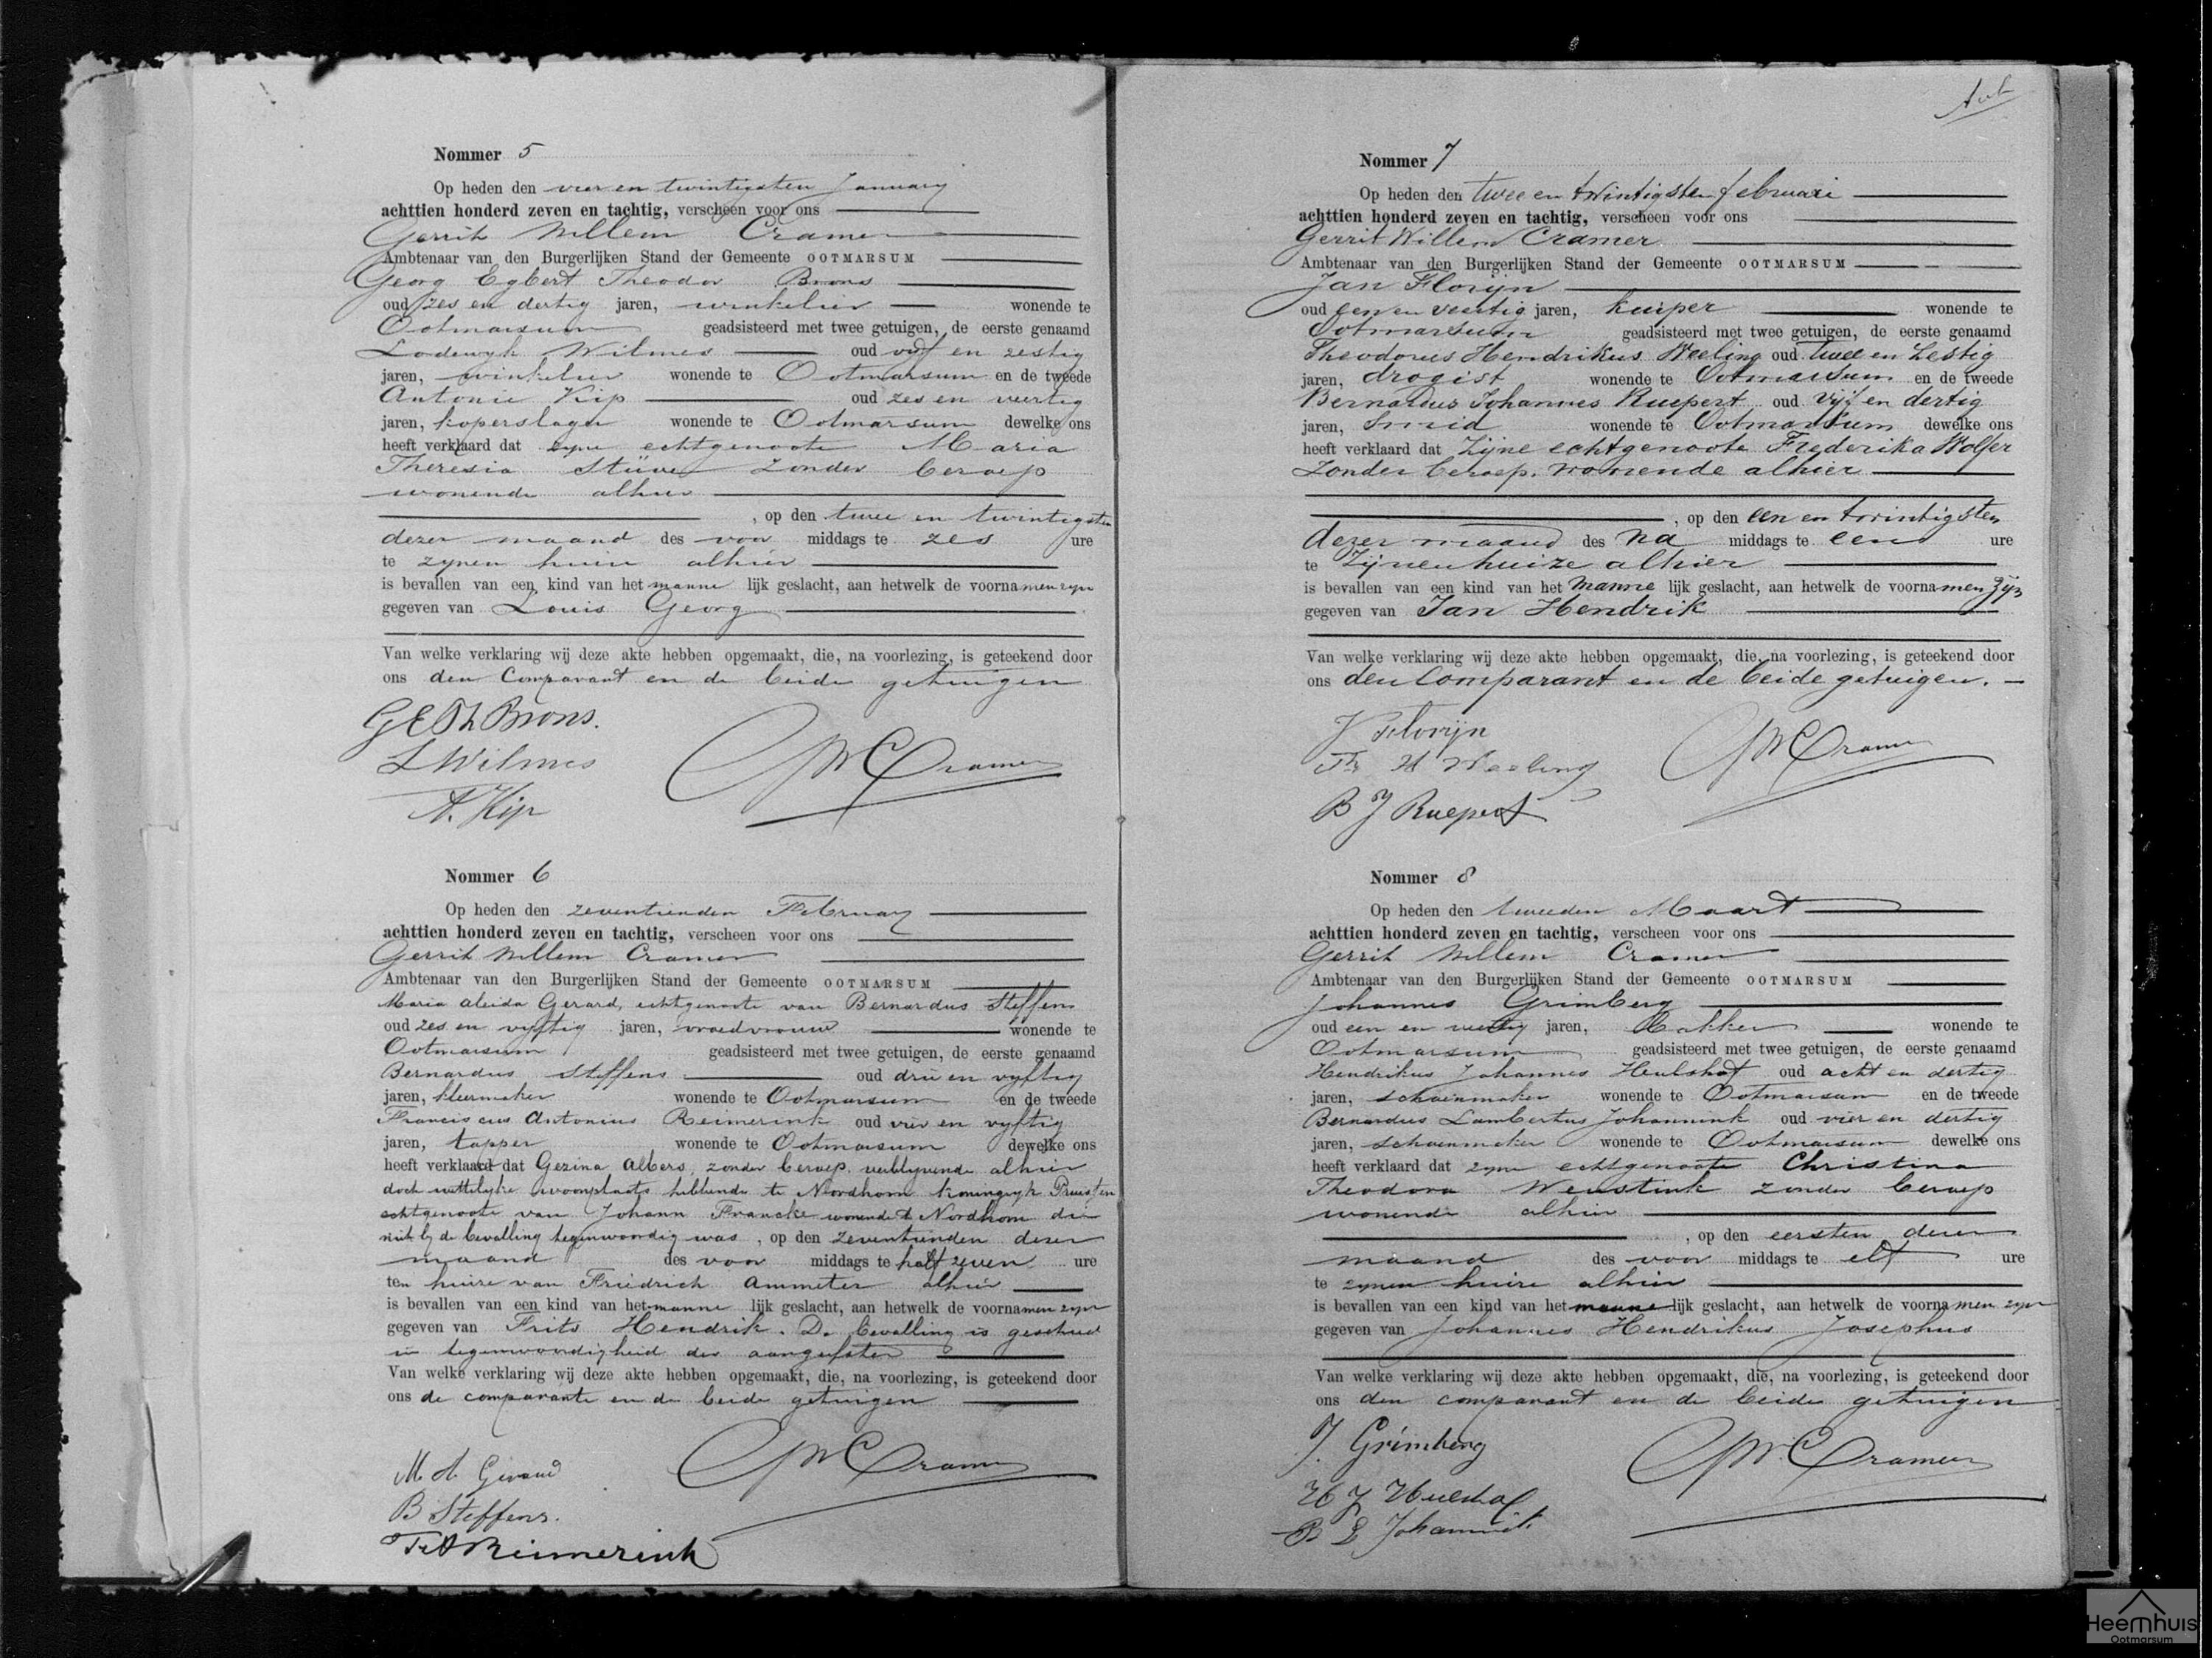 Nommer 5
Op heden den vier en twintigsten January
achttien honderd zeven en tachtig, verscheen voor ons
Gerrit Willem Cramer
Ambtenaar van den Burgerlijken Stand der Gemeente OOTMARSUM
Georg Egbert Theodor Brons
oud zes en dertig jaren, winkelier wonende te
Ootmarsum geadsisteerd met twee getuigen, de eerste genaamd
Lodewyk Wilmes oud vyf en zestig
jaren, winkelier wonende te Ootmarsum en de tweede
Antonie Kip oud zes en veertig
jaren, koperslager wonende te Ootmarsum dewelke ons
heeft verklaard dat zyne echtgenoote Maria
Theresia Stüve zonder beroep
wonende alhier
, op den twee en twintigsten
dezer maand des voor middags te zes ure
te zynen huize alhier
is bevallen van een kind van het manne lijk geslacht, aan hetwelk de voornamen zyn
gegeven van Louis Georg
Van welke verklaring wij deze akte hebben opgemaakt, die, na voorlezing, is geteekend door
ons den Comparant en de beide getuigen
G E Th Brons.
L Wilmes
A. Kip
GW Cramer
Nommer 6
Op heden den zeventienden February
achttien honderd zeven en tachtig, verscheen voor ons
Gerrit Willem Cramer
Ambtenaar van den Burgerlijken Stand der Gemeente OOTMARSUM
Maria Aleida Gerard, echtgenoote van Bernardus Steffens
oud zes en vyftig jaren, vroedvrouw wonende te
Ootmarsum geadsisteerd met twee getuigen, de eerste genaamd
Bernardus Steffens oud drie en vyftig
jaren, kleermaker wonende te Ootmarsum en de tweede
Franciscus Antonius Reimerink oud vier en vyftig
jaren, tapper wonende te Ootmarsum dewelke ons
heeft verklaard dat Gezina Albers, zonder beroep, verblyvende alhier
doch wettelyke woonplaats hebbende te Nordhorn koningryk Pruissen
echtgenoote van Johann Francke wonende te Nordhorn die
niet by de bevalling tegenwoordig was, op den zeventienden dezer
maand des voor middags te half zeven ure
ten huize van Friedrich Ammeter alhier
is bevallen van een kind van het manne lijk geslacht, aan hetwelk de voornamen zyn
gegeven van Frits Hendrik. De bevalling is geschied
in tegenwoordigheid der aangeefster
Van welke verklaring wij deze akte hebben opgemaakt, die, na voorlezing, is geteekend door
ons de comparante en de beide getuigen
M A Gerard
B Steffens.
Fr A Reimerink
GW Cramer
Nommer 7
Op heden den twee en twintigsten februari
achttien honderd zeven en tachtig, verscheen voor ons
Gerrit Willem Cramer
Ambtenaar van den Burgerlijken Stand der Gemeente OOTMARSUM
Jan Florijn
oud een en veertig jaren, kuiper wonende te
Ootmarsum geadsisteerd met twee getuigen, de eerste genaamd
Theodorus Hendrikus Weeling oud twee en zestig
jaren, drogist wonende te Ootmarsum en de tweede
Bernardus Johannes Ruepert oud vijf en dertig
jaren, Smid wonende te Ootmarsum dewelke ons
heeft verklaard dat Zijne echtgenoote Frederika Wolfer
Zonder beroep, wonende alhier
, op den een en twintigsten
dezer maand des na middags te een ure
te Zijnen huize alhier
is bevallen van een kind van het manne lijk geslacht, aan hetwelk de voornamen zijn
gegeven van Jan Hendrik
Van welke verklaring wij deze akte hebben opgemaakt, die, na voorlezing, is geteekend door
ons den Comparant en de beide getuigen.
J Florijn
Th H Weeling
B J Ruepert
GW Cramer
Nommer 8
Op heden den tweeden Maart
achttien honderd zeven en tachtig, verscheen voor ons
Gerrit Willem Cramer
Ambtenaar van den Burgerlijken Stand der Gemeente OOTMARSUM
Johannes Grimberg
oud een en veertig jaren, Bakker wonende te
Ootmarsum geadsisteerd met twee getuigen, de eerste genaamd
Hendrikus Johannes Hulshof oud acht en dertig
jaren, schoenmaker wonende te Ootmarsum en de tweede
Bernardus Lambertus Johannink oud vier en dertig
jaren, schoenmaker wonende te Ootmarsum dewelke ons
heeft verklaard dat zyne echtgenoote Christina
Theodora Wenstink zonder beroep
wonende alhier
, op den eersten dezer
maand des voor middags te elf ure
te zynen huize alhier
is bevallen van een kind van het manne lijk geslacht, aan hetwelk de voornamen zyn
gegeven van Johannes Hendrikus Josephus
Van welke verklaring wij deze akte hebben opgemaakt, die, na voorlezing, is geteekend door
ons den comparant en de beide getuigen
J. Grimberg
H J Hulshof
B L Johannink
GW Cramer
Heemhuis
Ootmarsum